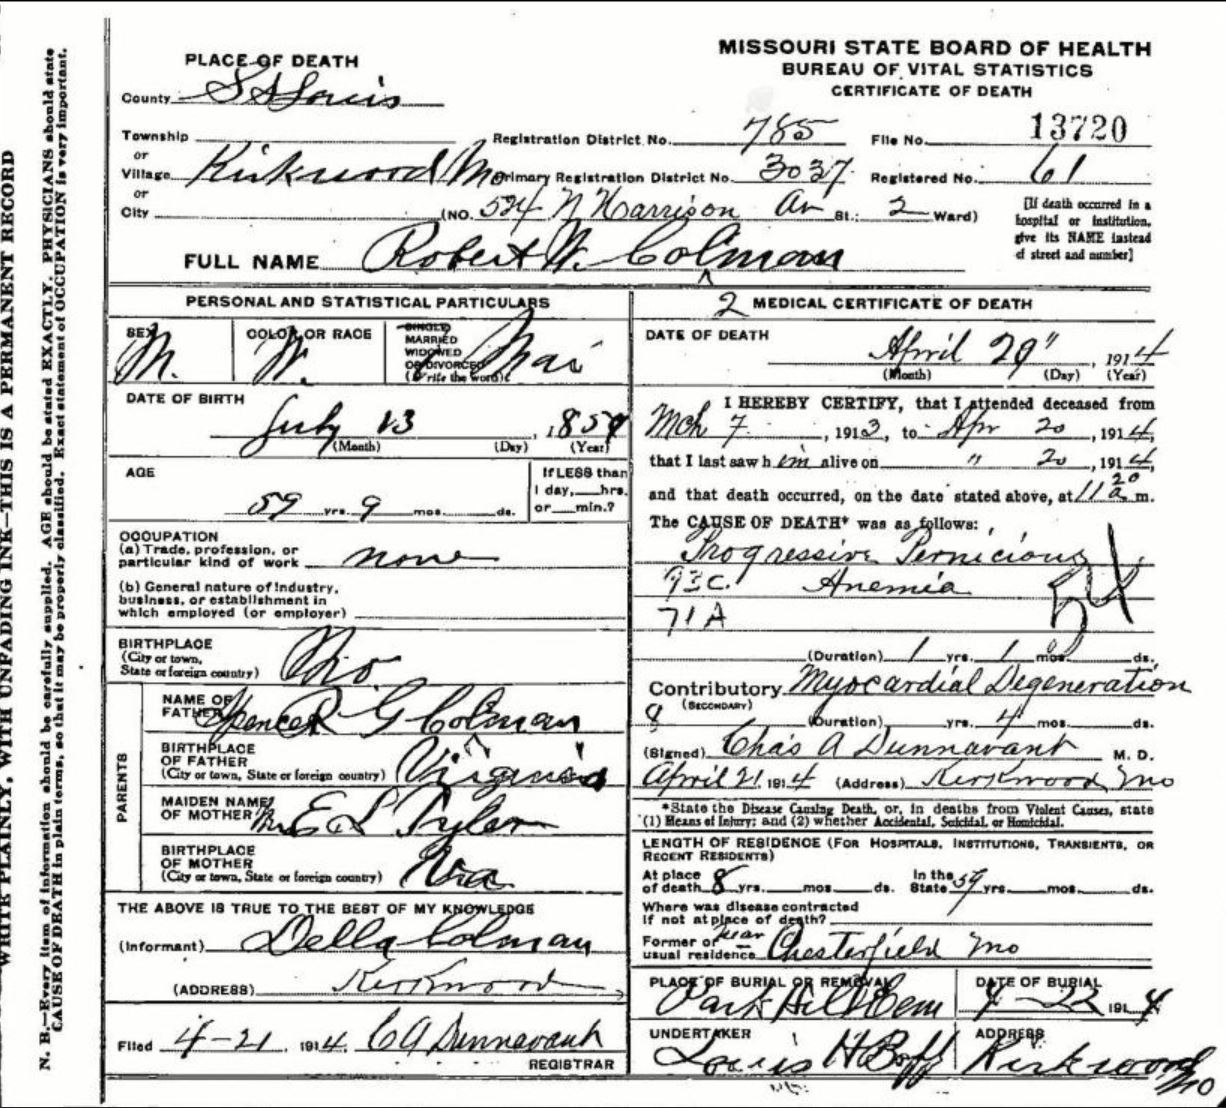 MISSOURI STATE BOARD OF HEALTH
BUREAU OF VITAL STATISTICS
CERTIFICATE OF DEATH
PLACE OF DEATH
County St Louis
Township
or
Village Kirkwood Mo
or
City
Registration District No. 785 File No. 13720
Primary Registration District No. 3037 Registered No. 61
(NO. 524 N Harrison Av St.; 2 Ward)
[If death occurred in a
hospital or institution,
give its NAME instead
of street and number]
FULL NAME Robert W. Colman
PERSONAL AND STATISTICAL PARTICULARS
SEX M.
COLOR OR RACE W.
SINGLE
MARRIED
WIDOWED
OR DIVORCED
(Write the word) Mar
DATE OF BIRTH
July 13, 1854
(Month) (Day) (Year)
AGE
59 yrs. 9 mos. ds.
If LESS than
1 day, hrs.
or min.?
OCCUPATION
(a) Trade, profession, or
particular kind of work none
(b) General nature of industry,
business, or establishment in
which employed (or employer)
BIRTHPLACE
(City or town,
State or foreign country) Mo
PARENTS
NAME OF
FATHER Spencer G Colman
BIRTHPLACE
OF FATHER
(City or town, State or foreign country) Virginia
MAIDEN NAME
OF MOTHER Mrs E L Tyler
BIRTHPLACE
OF MOTHER
(City or town, State or foreign country) Va
THE ABOVE IS TRUE TO THE BEST OF MY KNOWLEDGE
(Informant) Della Colman
(ADDRESS) Kirkwood
Filed 4-21, 1914 C A Dunnavant
REGISTRAR
2 MEDICAL CERTIFICATE OF DEATH
DATE OF DEATH
April 20", 1914
(Month) (Day) (Year)
I HEREBY CERTIFY, that I attended deceased from
Mch 7, 1913, to Apr 20, 1914,
that I last saw him alive on " 20, 1914,
and that death occurred, on the date stated above, at 11 20 a m.
The CAUSE OF DEATH* was as follows:
Progressive Pernicious
93C. Anemia 54
71A
(Duration) 1 yrs. 1 mos. ds.
Contributory Myocardial Degeneration
(SECONDARY)
8 (Duration) yrs. 4 mos. ds.
(Signed) Chas A Dunnavant M. D.
April 21 1914 (Address) Kirkwood Mo
*State the Disease Causing Death, or, in deaths from Violent Causes, state
(1) Means of Injury; and (2) whether Accidental, Suicidal, or Homicidal.
LENGTH OF RESIDENCE (FOR HOSPITALS, INSTITUTIONS, TRANSIENTS, OR
RECENT RESIDENTS)
At place
of death 8 yrs. mos. ds.
In the
State 59 yrs. mos. ds.
Where was disease contracted
If not at place of death?
Former or
usual residence near Chesterfield Mo
PLACE OF BURIAL OR REMOVAL
Park Hill Cem
DATE OF BURIAL
4-22 1914
UNDERTAKER
Louis H Bopp
ADDRESS
Kirkwood Mo
WRITE PLAINLY, WITH UNFADING INK—THIS IS A PERMANENT RECORD
N. B.—Every item of information should be carefully supplied. AGE should be stated EXACTLY. PHYSICIANS should state
CAUSE OF DEATH in plain terms, so that it may be properly classified. Exact statement of OCCUPATION is very important.